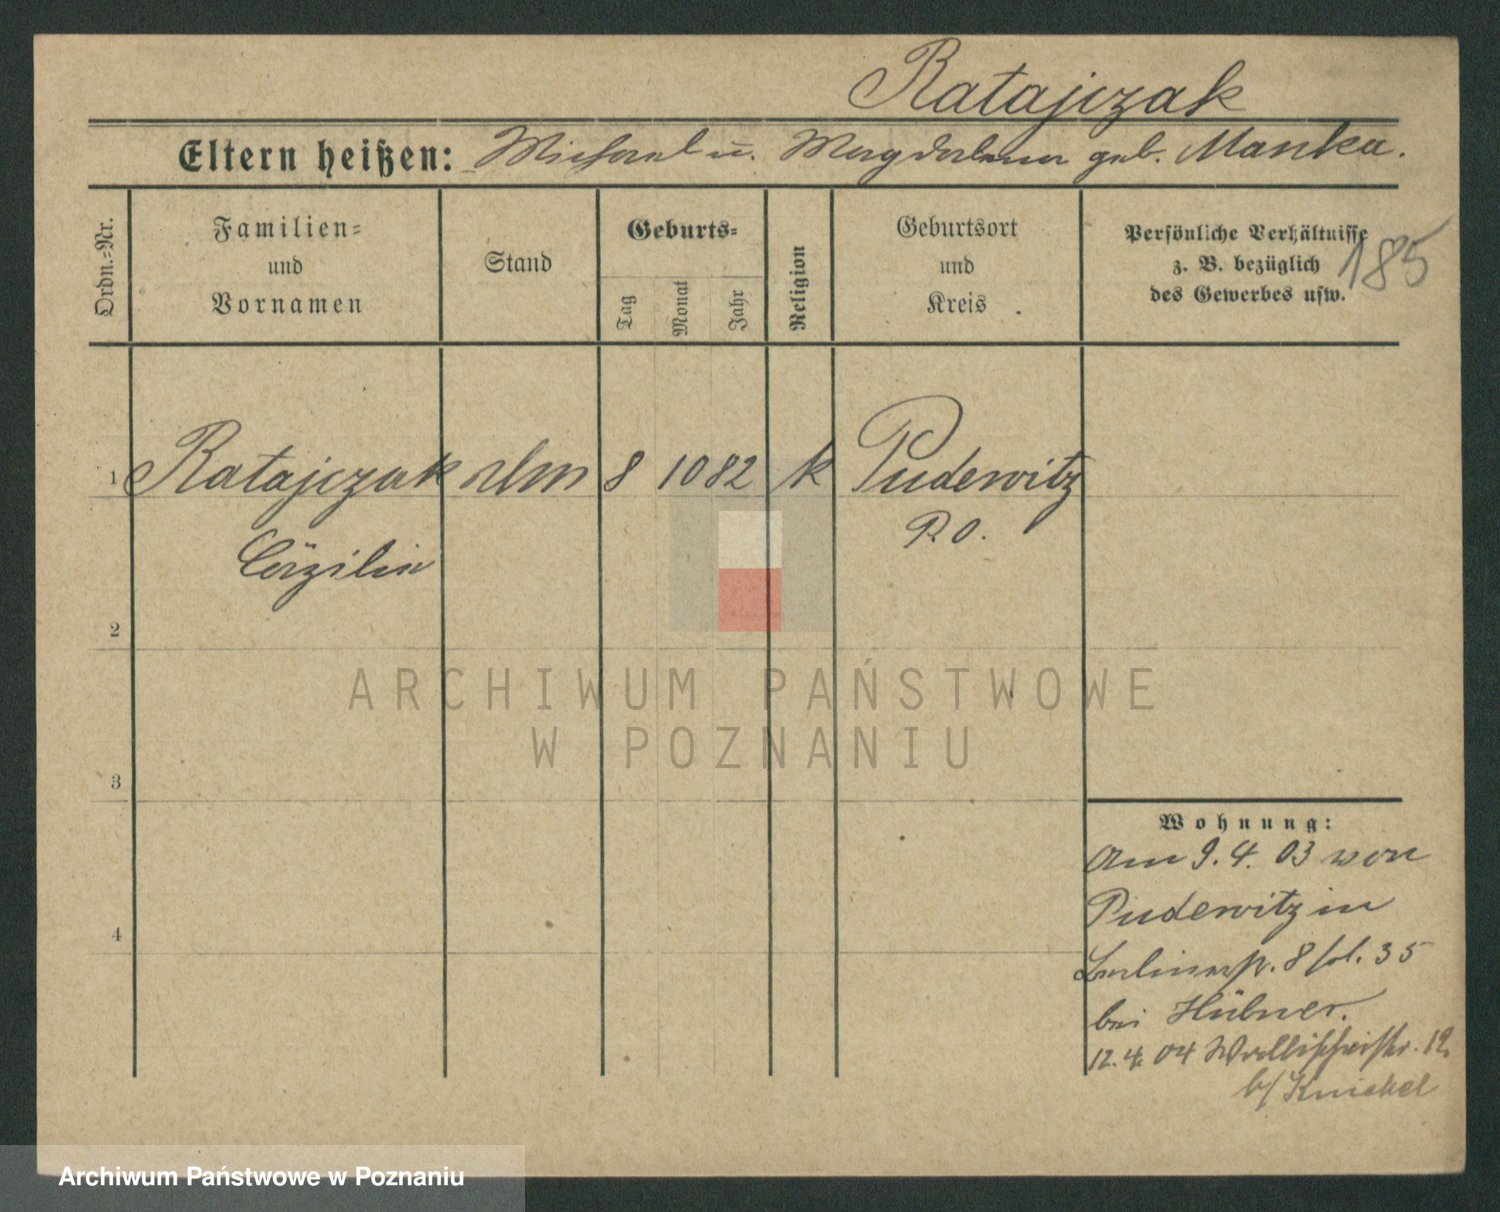 Ratajczak
Eltern heißen: Michael u. Magdalena geb. Manka.
Ordn.=Nr.
Familien=
und
Vornamen
Stand
Geburts=
Tag
Monat
Jahr
Religion
Geburtsort
und
Kreis
Persönliche Verhältnisse
z. B. bezüglich
des Gewerbes usw.
185
1 Ratajczak 8 10 82 k Pudewitz
Cäzilie P. O.
2
3
4
Wohnung:
Am 9. 4. 03 von
Pudewitz in
Berlinerstr. 8 fol. 35
bei Hübner.
12. 4. 04 Wallischeistr. 12
b/ Kniekel
ARCHIWUM PAŃSTWOWE
W POZNANIU
Archiwum Państwowe w Poznaniu